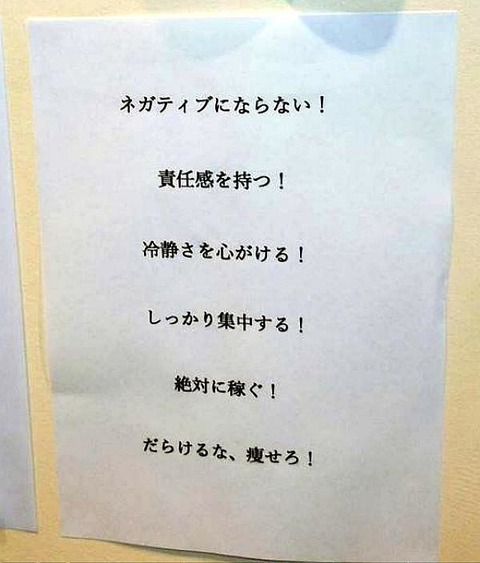 ネガティブにならない！
責任感を持つ！
冷静さを心がける！
しっかり集中する！
絶対に稼ぐ！
だらけるな、痩せろ！